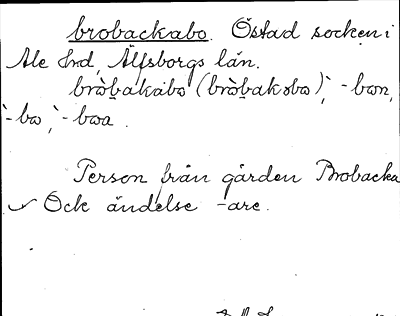 brobackabo. Östad socken i
Ale hrd, Älfsborgs län.
bròbakabo (bròbakəbo); -bon,
-bo; -boa.
Person från gården Brobacka
Ock ändelse -are.